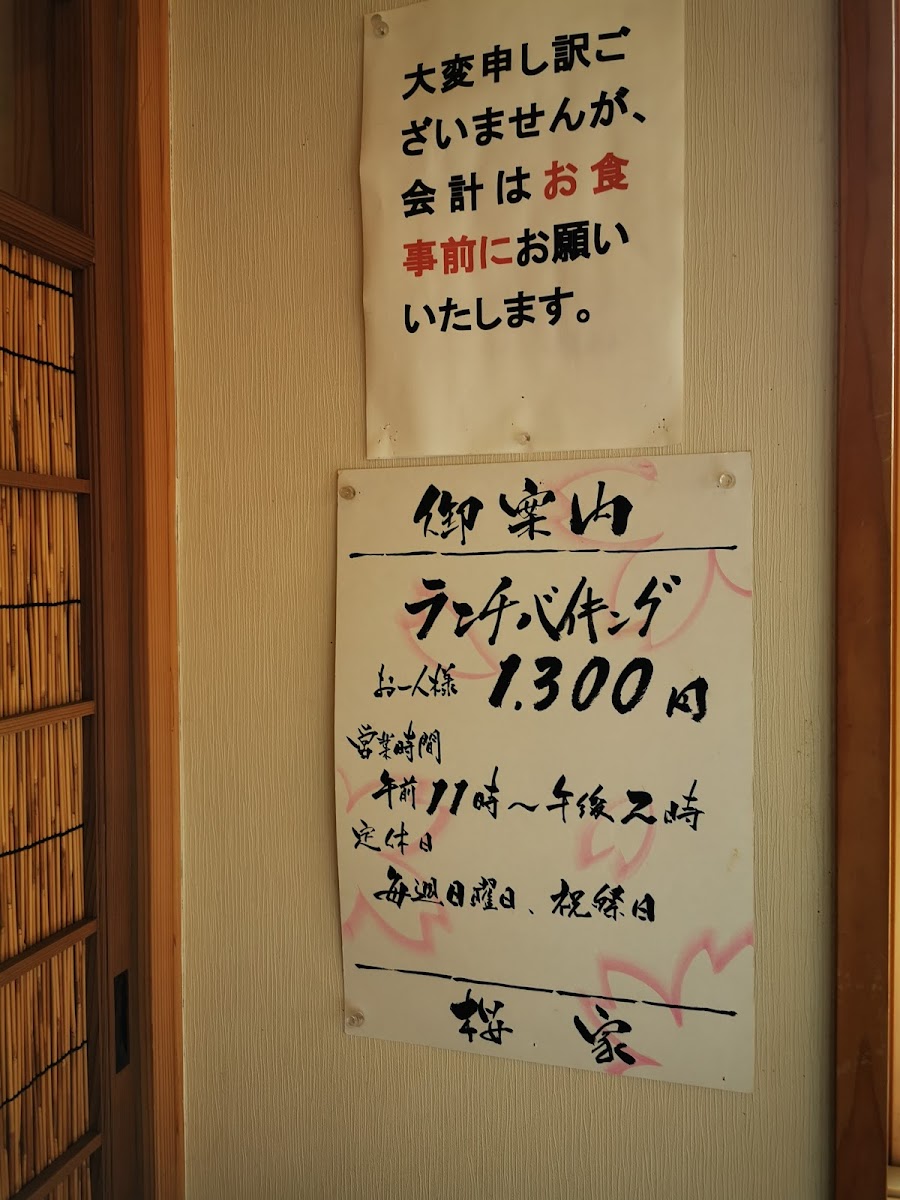 大変申し訳ご
ざいませんが、
会計はお食
事前にお願い
いたします。
御案内
ランチバイキング
お一人様 1.300円
営業時間
午前11時～午後2時
定休日
毎週日曜日、祝祭日
桜家